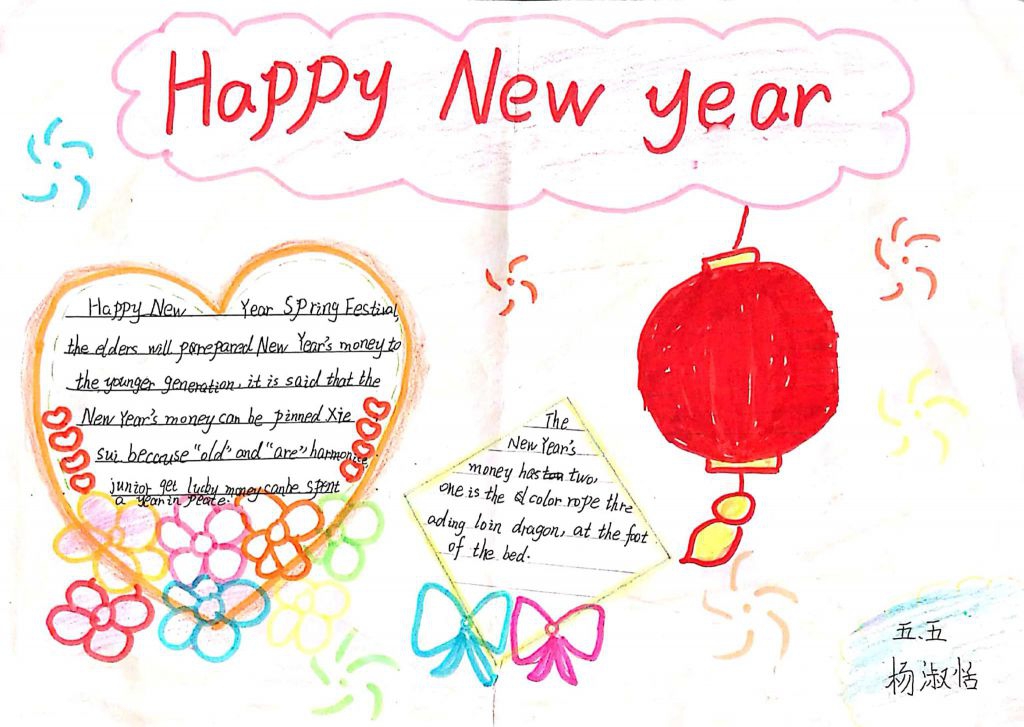 Happy New year
Happy New Year Spring Festival,
the elders will porepared New Year's money to
the younger generation, it is said that the
New Year's money can be pinned Xie
sui becouse "old" and "are" harmonice,
junior get lucby money canbe spent
a year in peate.
The
New Year's
money has two,
one is the a color rope thre
ading loin dragon, at the foot
of the bed.
五.五
杨淑恬